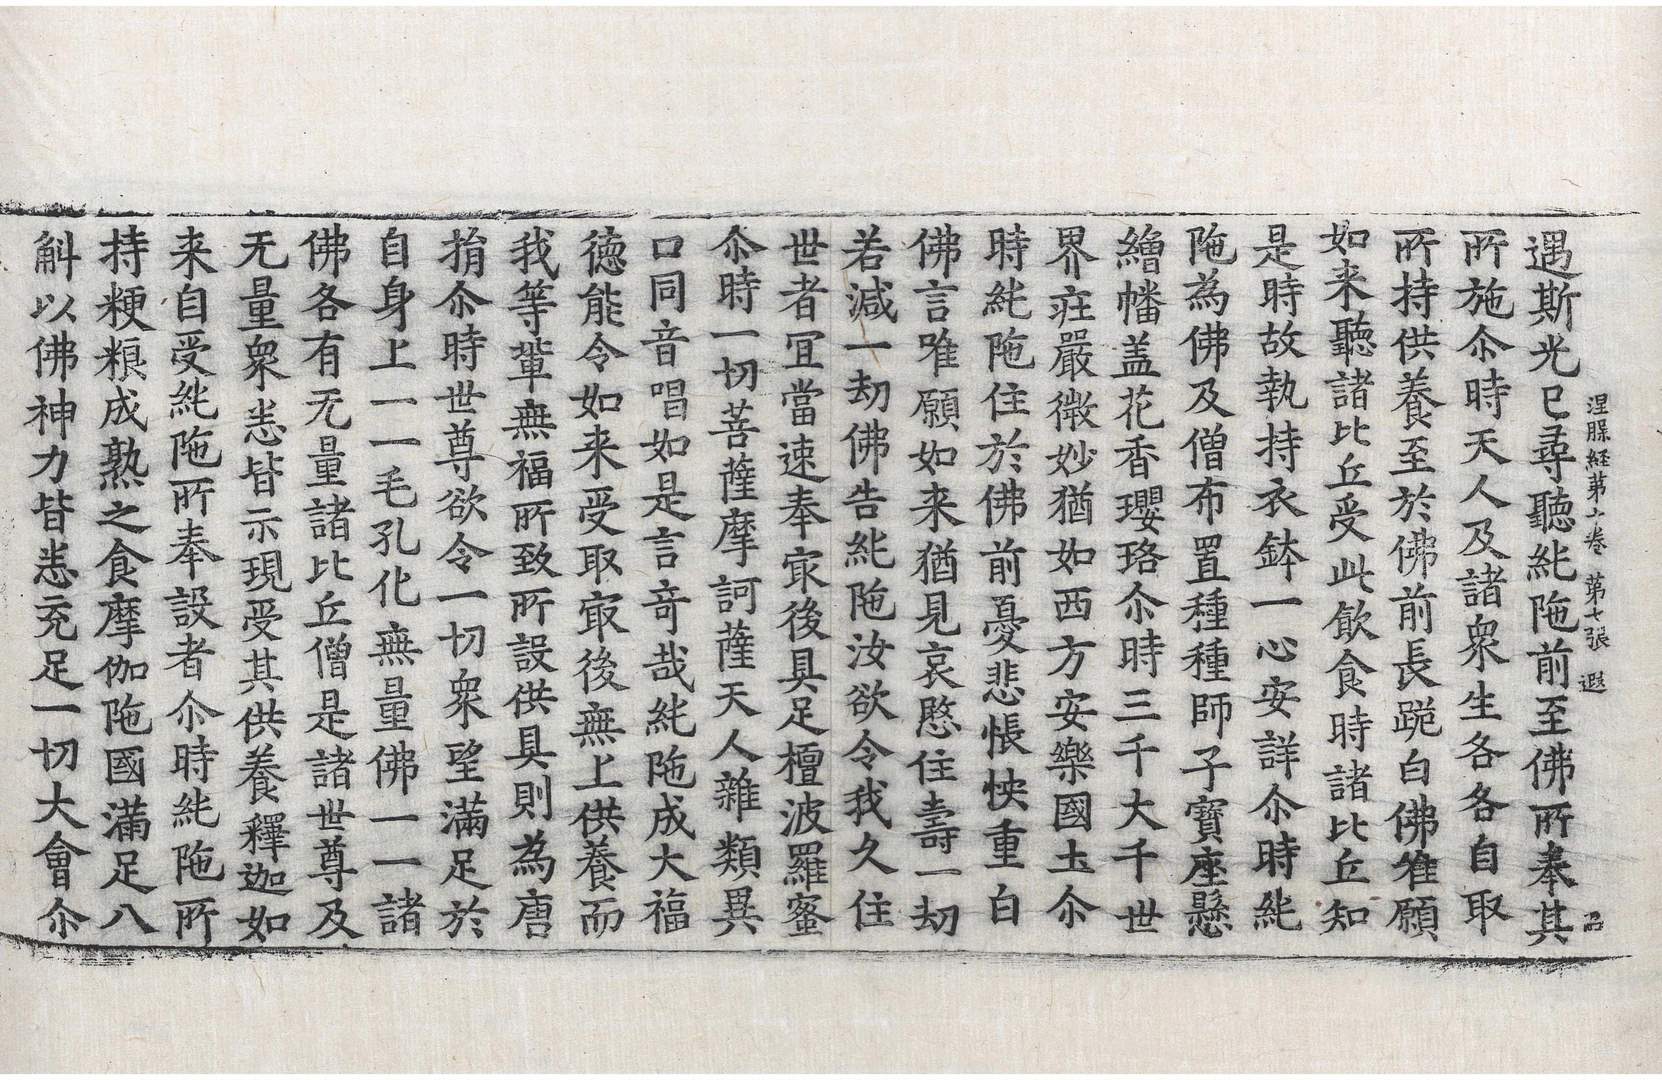 遇斯光已尋聽純陁前至佛所奉其
涅槃経苐十卷 苐七張 遐
所施尒時天人及諸衆生各各自取
所持供養至於佛前長跪白佛唯願
如来聽諸比丘受此飲食時諸比丘知
是時故執持衣鉢一心安詳尒時純
陁為佛及僧布置種種師子寶座懸
繒幡盖花香瓔珞尒時三千大千世
界莊嚴微妙猶如西方安樂國土尒
時純陁住於佛前憂悲悵怏重白
佛言唯願如来猶見哀愍住壽一劫
若減一劫佛告純陁汝欲令我久住
世者冝當速奉㝡後具足檀波羅蜜
尒時一切菩薩摩訶薩天人雜類異
口同音唱如是言竒哉純陁成大福
德能令如来受取㝡後無上供養而
我等軰無福所致所設供具則為唐
捐尒時世尊欲令一切衆望滿足於
自身上一一毛孔化無量佛一一諸
佛各有无量諸比丘僧是諸世尊及
无量衆悉皆示現受其供養釋迦如
来自受純陁所奉設者尒時純陁所
持粳粮成熟之食摩伽陁國滿足八
斛以佛神力皆悉充足一切大會尒